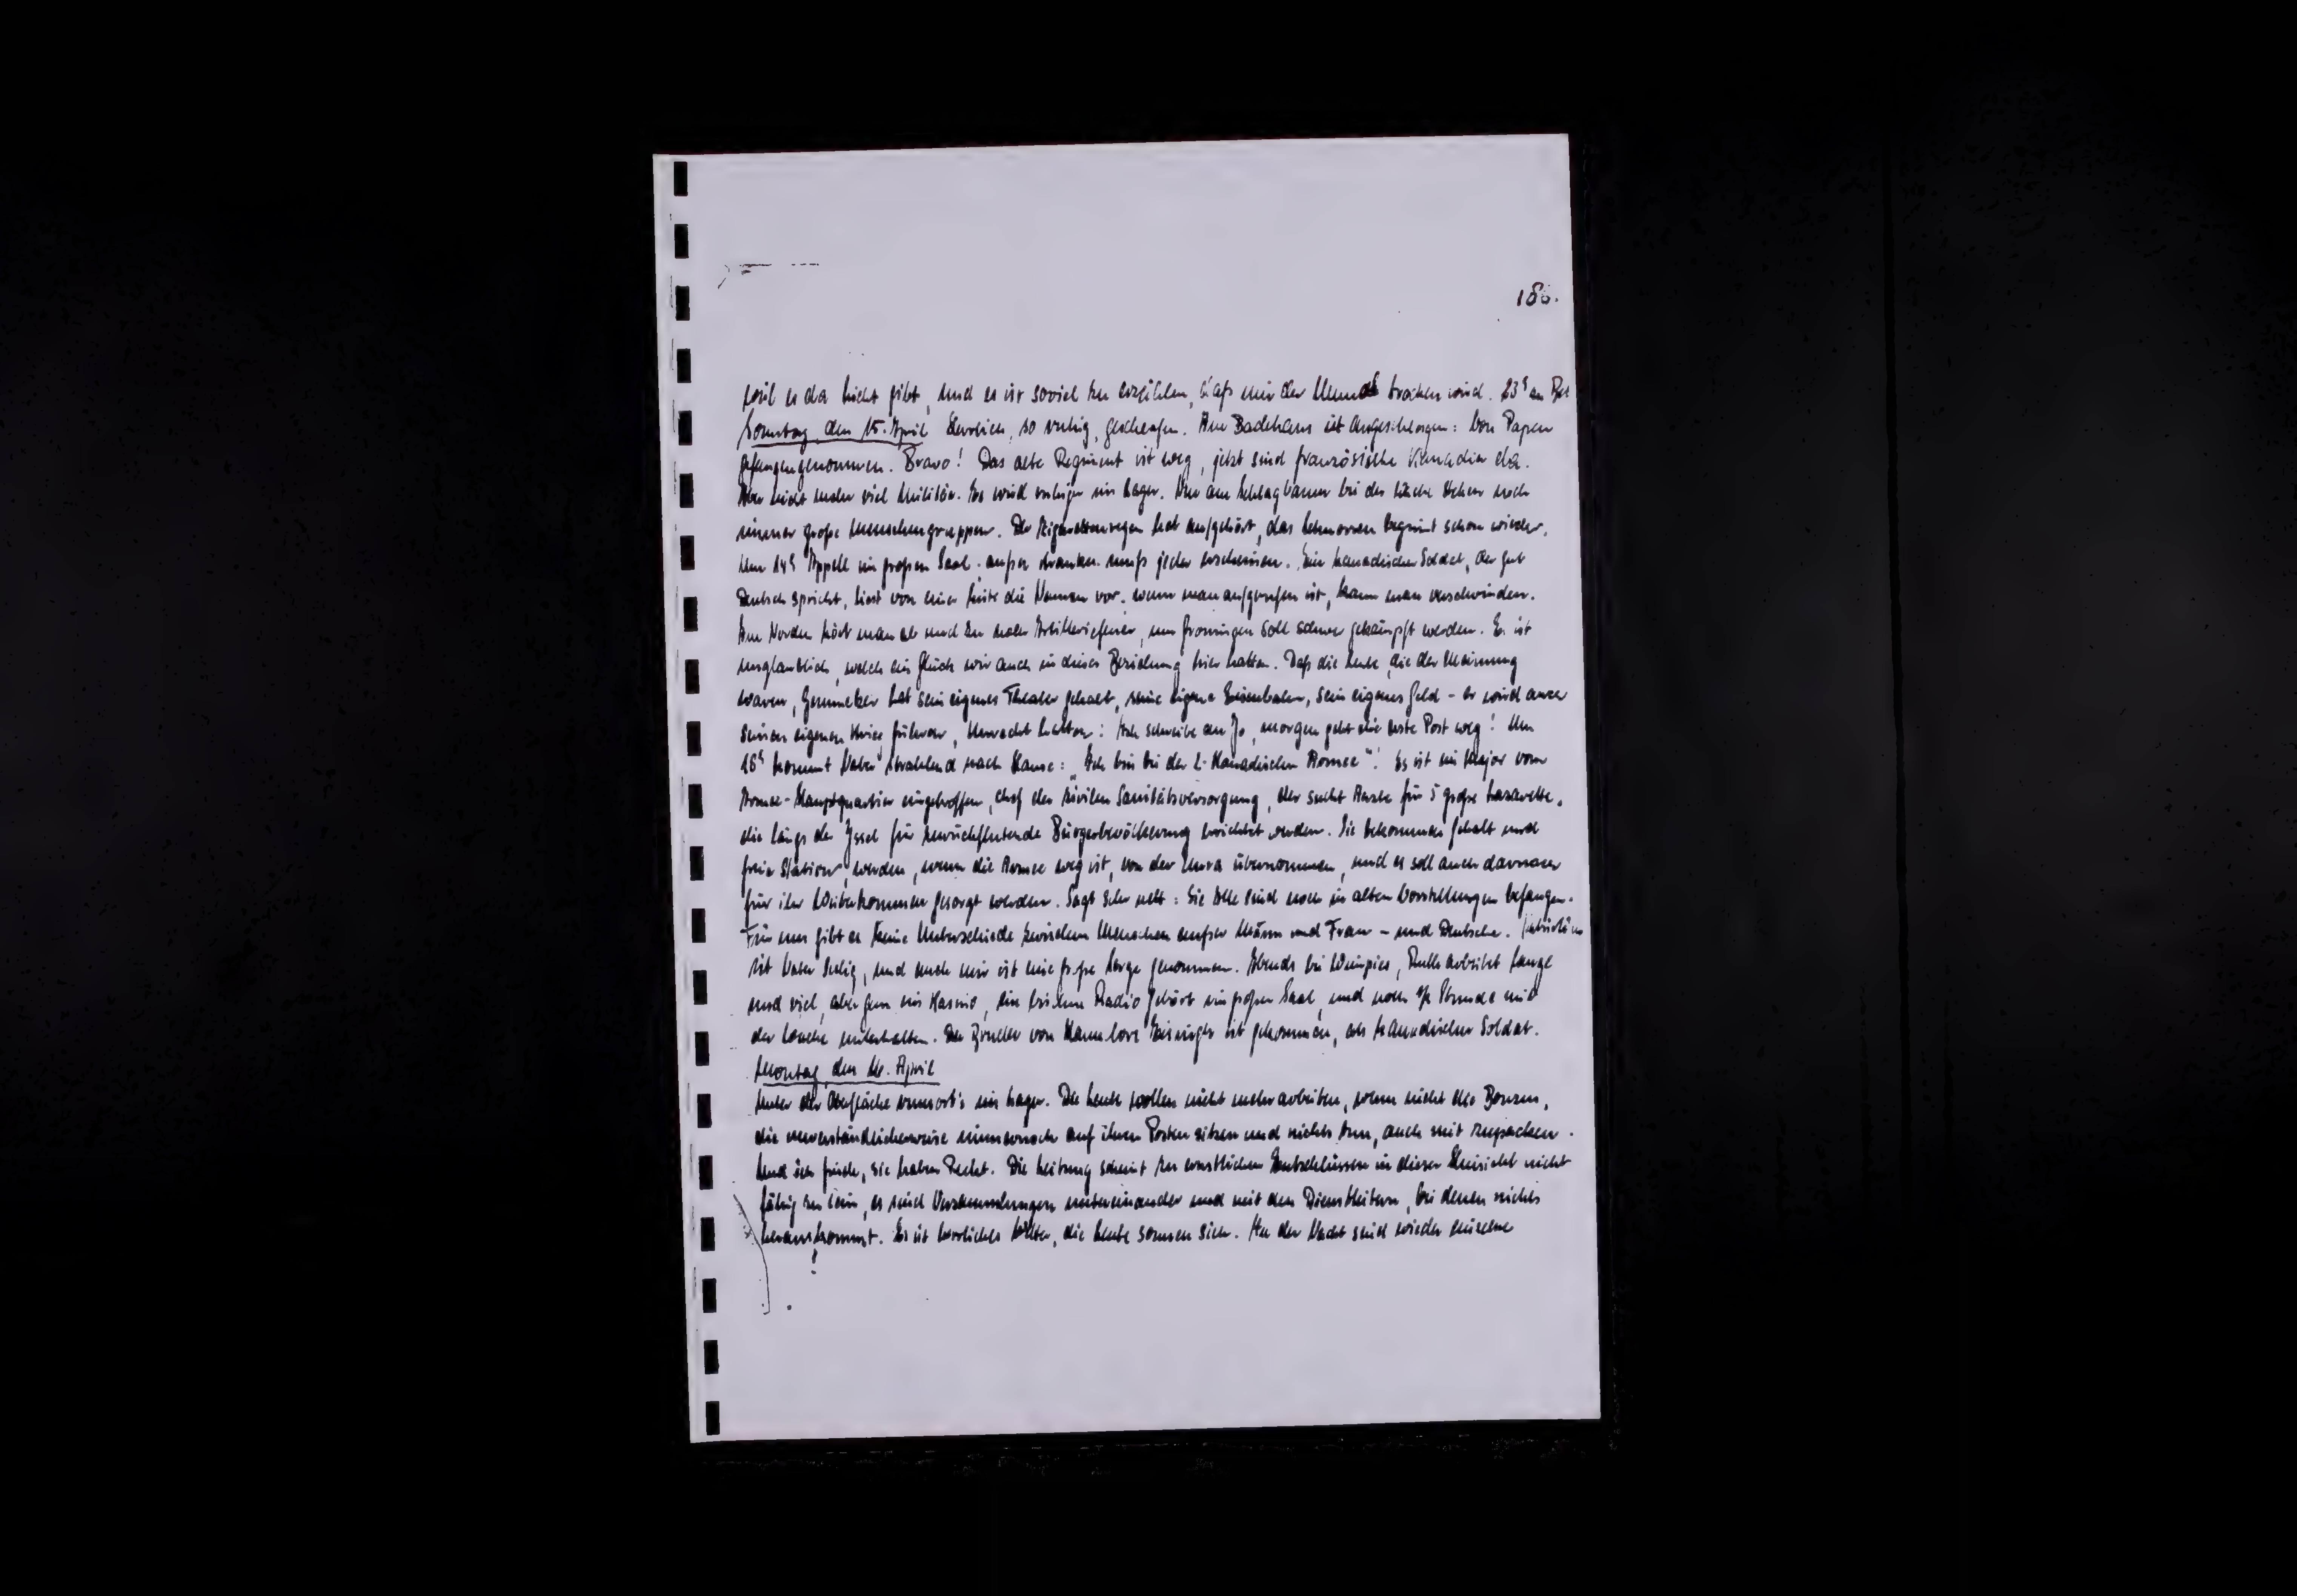 186.
weil es da nicht gibt, und es ist soviel zu erzählen, daß mir der Mund trocken wird. 23h zu Bett
Sonntag, den 15. April Herrlich, so ruhig, geschlafen. Am Badehaus ist angeschlagen: Von Papen
gefangengenommen. Bravo! Das alte Regiment ist weg, jetzt sind französische Kanadier da.
Aber nicht mehr viel Militär. Es wird ruhiger im Lager. Nur am Schlagbaum bei der Küche stehen noch
immer große Menschengruppen. Der Zigarettenregen hat aufgehört, das Schnorren beginnt schon wieder.
Um 14h Appell im großen Saal. außer Kranken muß jeder erscheinen. Ein kanadischer Soldat, der gut
Deutsch spricht, liest von einer Liste die Namen vor. wenn man aufgerufen ist, kann man verschwinden.
Im Norden hört man ab und zu noch Artilleriefeuer, um Groningen soll schwer gekämpft werden. Es ist
unglaublich, welch ein Glück wir auch in dieser Beziehung hier hatten. Daß die Leute, die der Meinung
waren, Gemmeker hat sein eigenes Theater gehabt, seine eigene Eisenbahn, sein eigenes Geld – er wird auch
seinen eigenen Krieg führen, Unrecht hatten: Ich schreibe an Jo, morgen geht die erste Post weg! Um
18h kommt Vater strahlend nach Hause: „Ich bin bei der 2. Kanadischen Armee"! Es ist ein Major vom
Armee-Hauptquartier eingetroffen, Chef der zivilen Sanitätsversorgung, der sucht Ärzte für 5 große Lazarette,
die längs der Yssel für zurückflutende Bürgerbevölkerung errichtet werden. Sie bekommen Gehalt und
freie Station, werden, wenn die Armee weg ist, von der Unra übernommen, und es soll auch darnach
für ihr Weiterkommen gesorgt werden. Sagt sehr nett: Sie alle sind noch in alten Vorstellungen befangen.
Für uns gibt es keine Unterschiede zwischen Menschen außer Mann und Frau – und Deutsche.
ist Vater selig, und auch mir ist eine große Sorge genommen. Abends bei Ruth arbeitet lange
und viel, aber gern im Kasino, ein bißchen Radio gehört im großen Saal, und noch 1/2 Stunde mit
der unterhalten. Der Bruder von Hannelore ist gekommen, als kanadischer Soldat.
Montag, den 16. April
Unter der Oberfläche rumort's im Lager. Die Leute wollen nicht mehr arbeiten, wenn nicht die Bonzen,
die unverständlicherweise immernoch auf ihren Posten sitzen und nichts tun, auch mit zupacken.
Und ich finde, sie haben Recht. Die Leitung scheint zu ernstlichen Entschlüssen in dieser Hinsicht nicht
fähig zu sein, es sind Versammlungen untereinander und mit den Dienstleitern, bei denen nichts
herauskommt. Es ist herrliches Wetter, die Leute sonnen sich. In der Nacht sind wieder einzelne